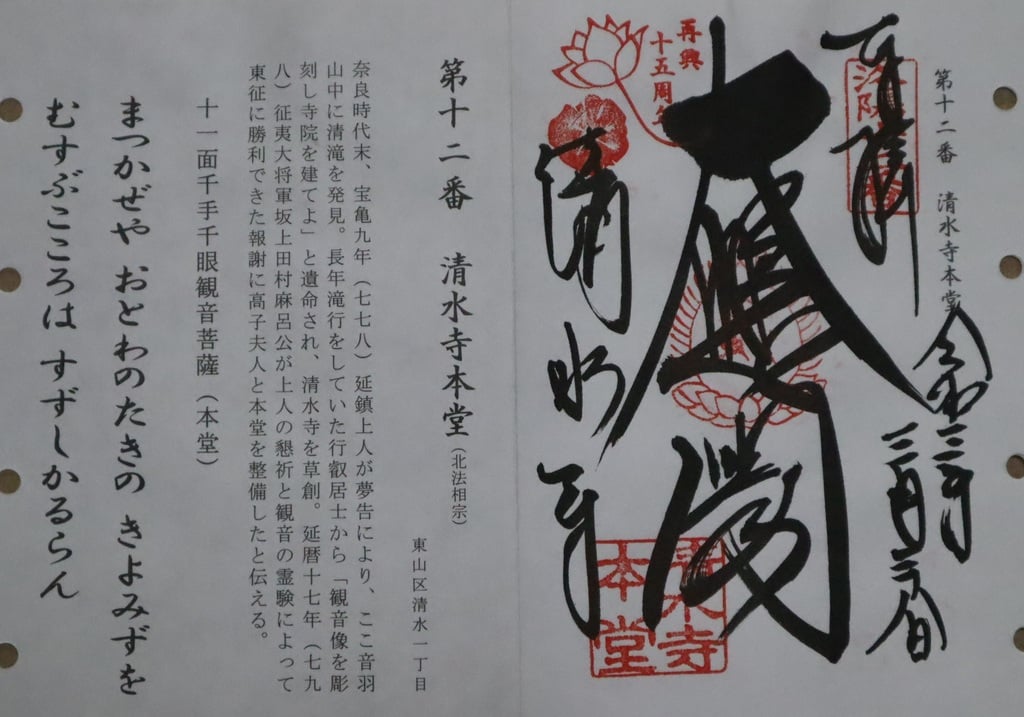 第十二番　清水寺本堂
奉拝
令和三年
二月二八日
大悲閣
清水寺
再興
十五周年
洛陽
清水寺
本堂
第十二番　清水寺本堂（北法相宗）
東山区清水一丁目
奈良時代末、宝亀九年（七七八）延鎮上人が夢告により、ここ音羽
山中に清滝を発見。長年滝行をしていた行叡居士から「観音像を彫
刻し寺院を建てよ」と遺命され、清水寺を草創。延暦十七年（七九
八）征夷大将軍坂上田村麻呂公が上人の懇祈と観音の霊験によって
東征に勝利できた報謝に高子夫人と本堂を整備したと伝える。
十一面千手千眼観音菩薩（本堂）
まつかぜや おとわのたきの きよみずを
むすぶこころは すずしかるらん